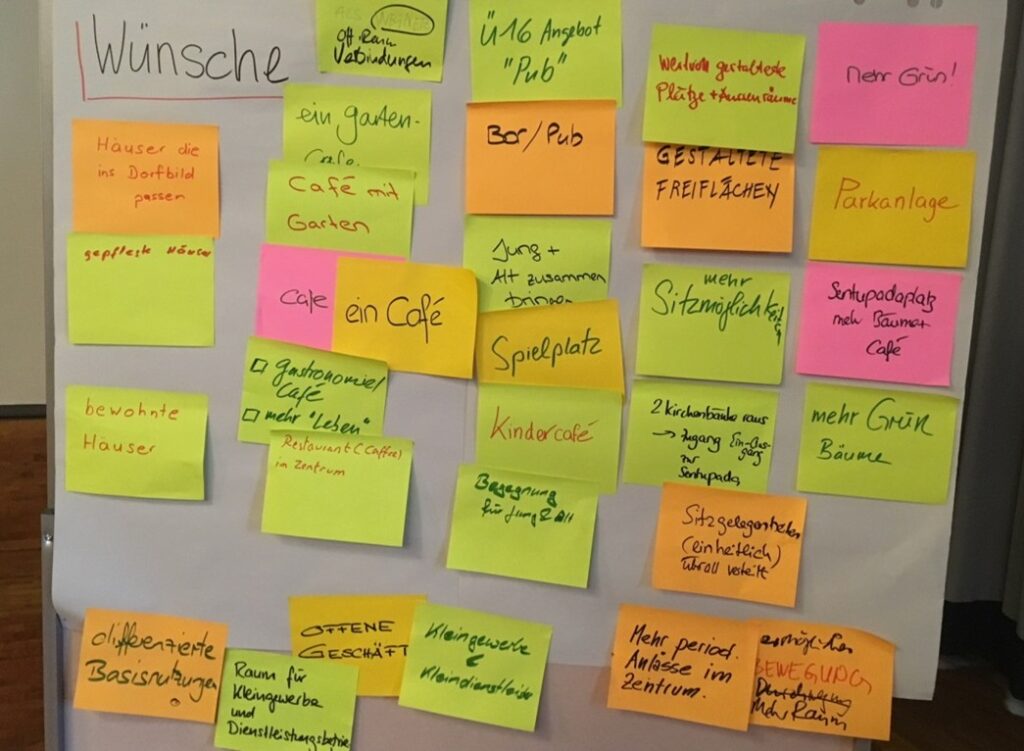 Wünsche
öff. Raum
Verbindungen
Ü16 Angebot
"Pub"
Wertvoll gestalteste
Plätze + Aussenräume
mehr Grün!
Häuser die
ins Dorfbild
passen
ein Garten-
Cafe
Bar/Pub
GESTALTETE
FREIFLÄCHEN
Parkanlage
Café mit
Garten
gepflegte Häuser
Jung +
Alt zusammen
bringen
Cafe
ein Café
Spielplatz
mehr
Sitzmöglichkeit
Sentupadaplatz
mehr Bäume +
Café
Gastronomie/
Café
mehr "Leben"
bewohnte
Häuser
Kindercafé
2 Kirchenbänke raus
→ Zugang Ein-Aus-
gang
zur
Sentupada
mehr Grün
Bäume
Restaurant (Caffee)
im Zentrum
Begegnung
für Jung & Alt
Sitzgelegenheiten
(einheitlich)
überall verteilt
differenzierte
Basisnutzungen
OFFENE
GESCHÄFT
Raum für
Kleingewerbe
und
Dienstleistungsbetrie
Kleingewerbe
&
Kleindienstleister
Mehr period.
Anlässe im
Zentrum.
ermöglichen
BEWEGUNG
Mehr Raum